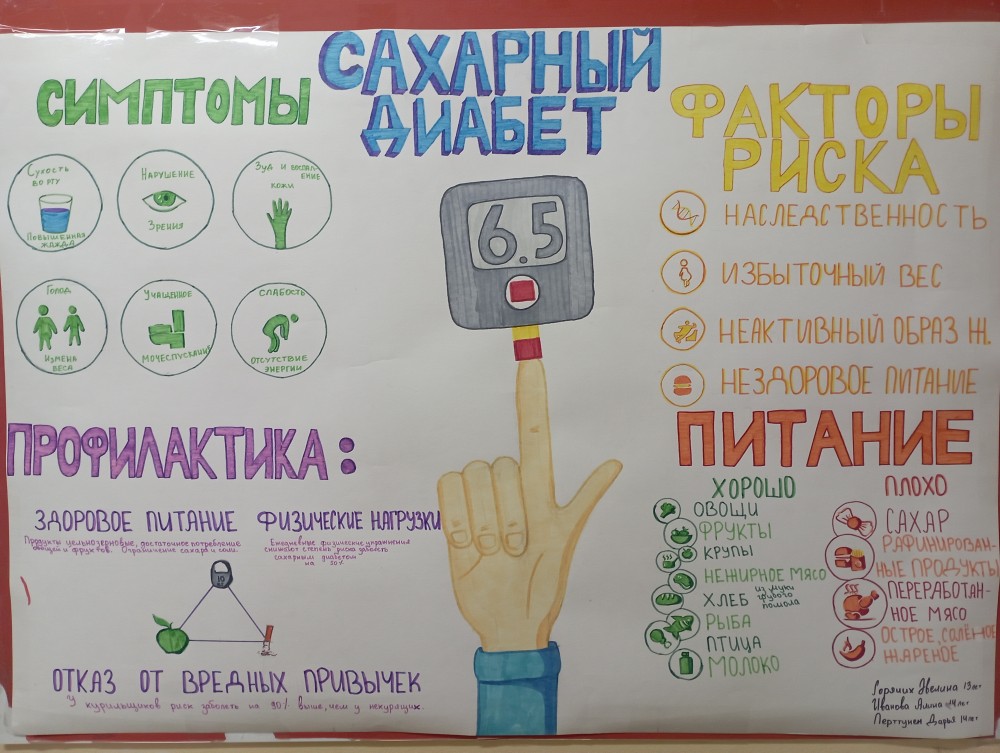 САХАРНЫЙ
ДИАБЕТ
СИМПТОМЫ
СУХОСТЬ
ВО РТУ
ПОВЫШЕННАЯ
ЖАЖДА
НАРУШЕНИЕ
ЗРЕНИЯ
ЗУД И ВОСПАЛ-
ЕНИЕ
КОЖИ
ГОЛОД
ИЗМЕНЬ
ВЕСА
УЧАЩЕННОЕ
МОЧЕСПУСКАНИЕ
СЛАБОСТЬ
ОТСУТСТВИЕ
ЭНЕРГИИ
6.5
ФАКТОРЫ
РИСКА
НАСЛЕДСТВЕННОСТЬ
ИЗБЫТОЧНЫЙ ВЕС
НЕАКТИВНЫЙ ОБРАЗ Ж.
НЕЗДОРОВОЕ ПИТАНИЕ
ПРОФИЛАКТИКА:
ЗДОРОВОЕ ПИТАНИЕ
Продукты цельнозерновые, достаточное потребление
овощей и фруктов. Ограничение сахара и соли.
ФИЗИЧЕСКИЕ НАГРУЗКИ
Ежедневные физические упражнения
снижают степень риска заболеть
сахарным диабетом
на 30%
10
ОТКАЗ ОТ ВРЕДНЫХ ПРИВЫЧЕК
У курильщиков риск заболеть на 90% выше, чем у некурящих.
ПИТАНИЕ
ХОРОШО
ОВОЩИ
ФРУКТЫ
КРУПЫ
НЕЖИРНОЕ МЯСО
ХЛЕБ из муки
грубого
помола
РЫБА
ПТИЦА
МОЛОКО
ПЛОХО
САХАР
РАФИНИРОВАН-
НЫЕ ПРОДУКТЫ
ПЕРЕРАБОТАН-
НОЕ МЯСО
ОСТРОЕ, СОЛЁНОЕ
ЖАРЕНОЕ
Горячих Эвелина 13 лет
Иванова Алина 14 лет
Перттунен Дарья 14 лет